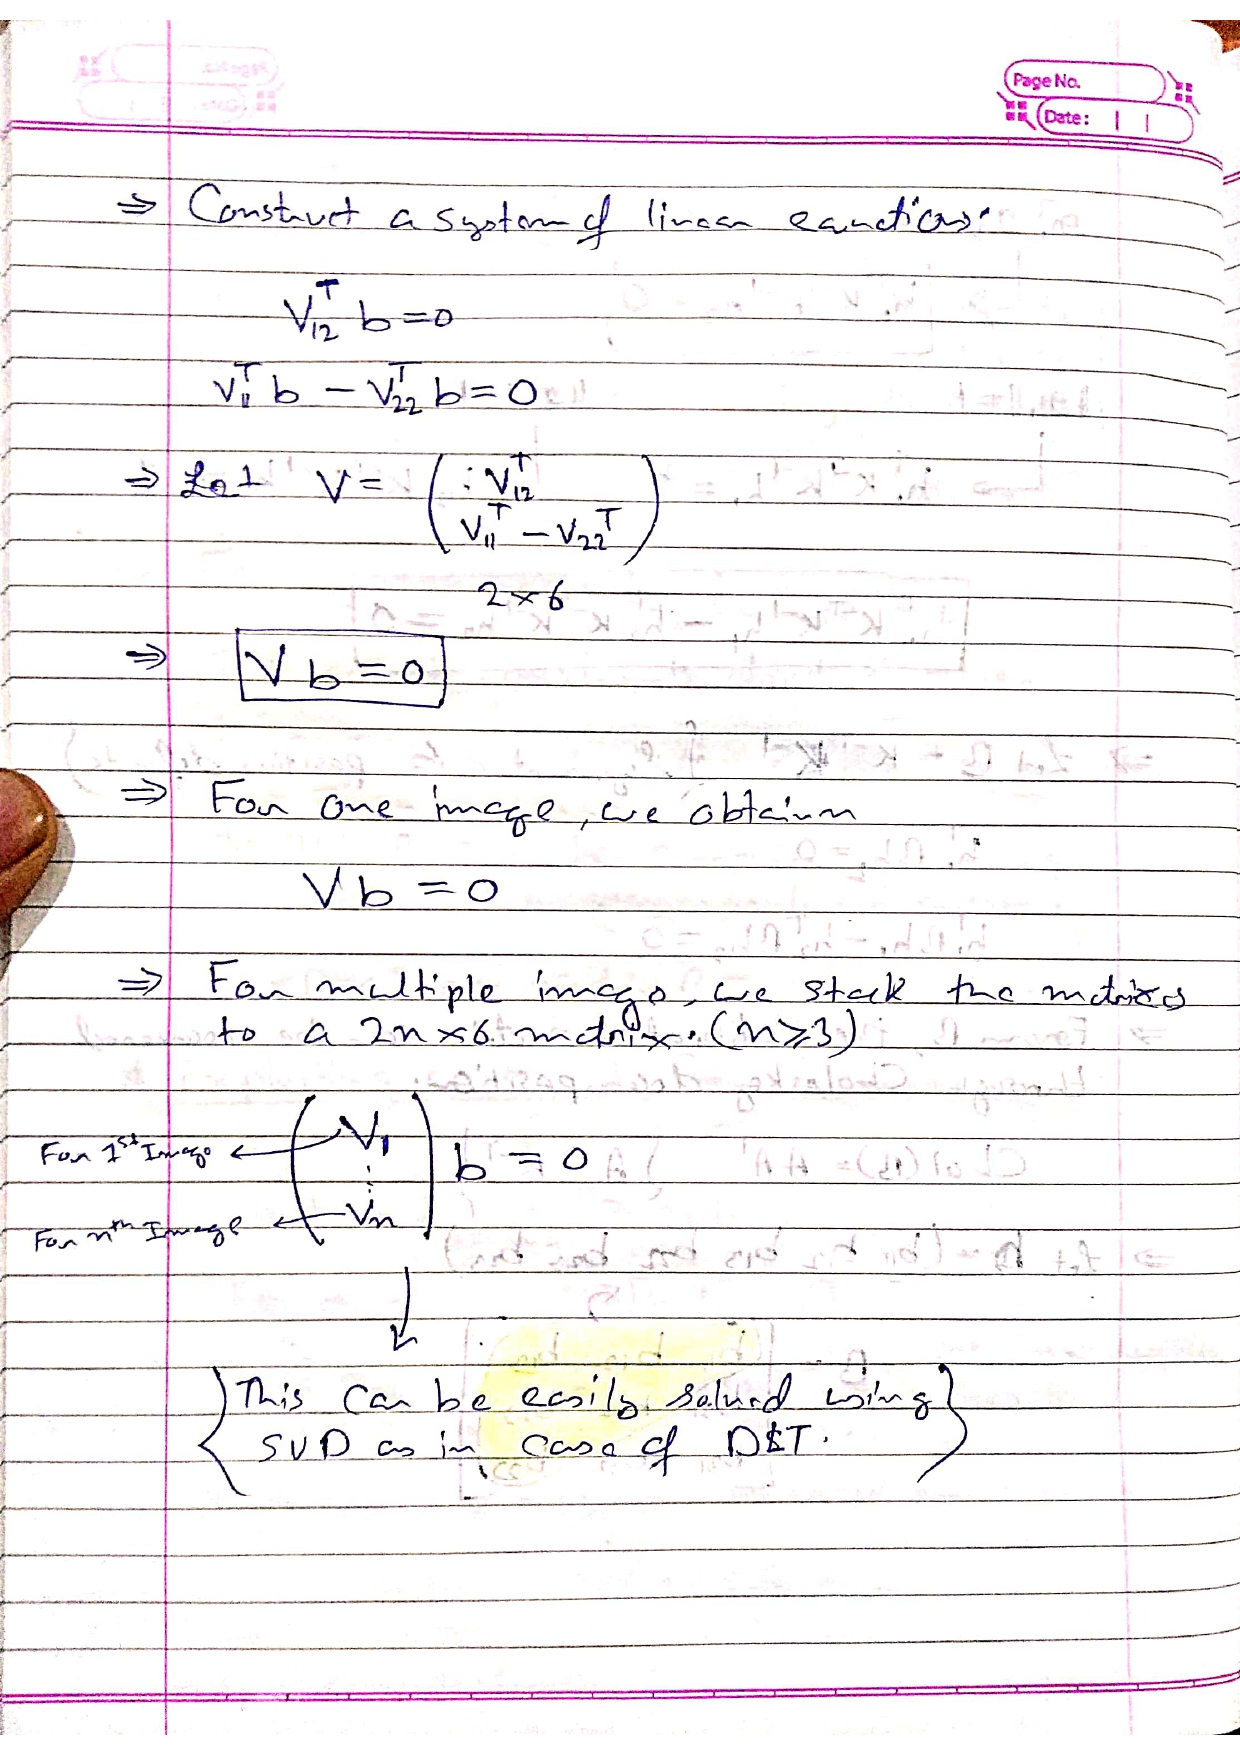 Page No.
Date:
⇒ Construct a system of linear equations.
V₁₂ᵀ b = 0
V₁₁ᵀ b − V₂₂ᵀ b = 0
⇒ Let V = ( V₁₂ᵀ
V₁₁ᵀ − V₂₂ᵀ )
2×6
⇒ V b = 0
⇒ For one image, we obtain
V b = 0
⇒ For multiple image, we stack the matrixes
to a 2n×6 matrix. (n⩾3)
For 1st Image ← ( V₁
⋮ ) b = 0
For nth Image ← Vn
↓
{ This can be easily solved using
SVD as in case of }